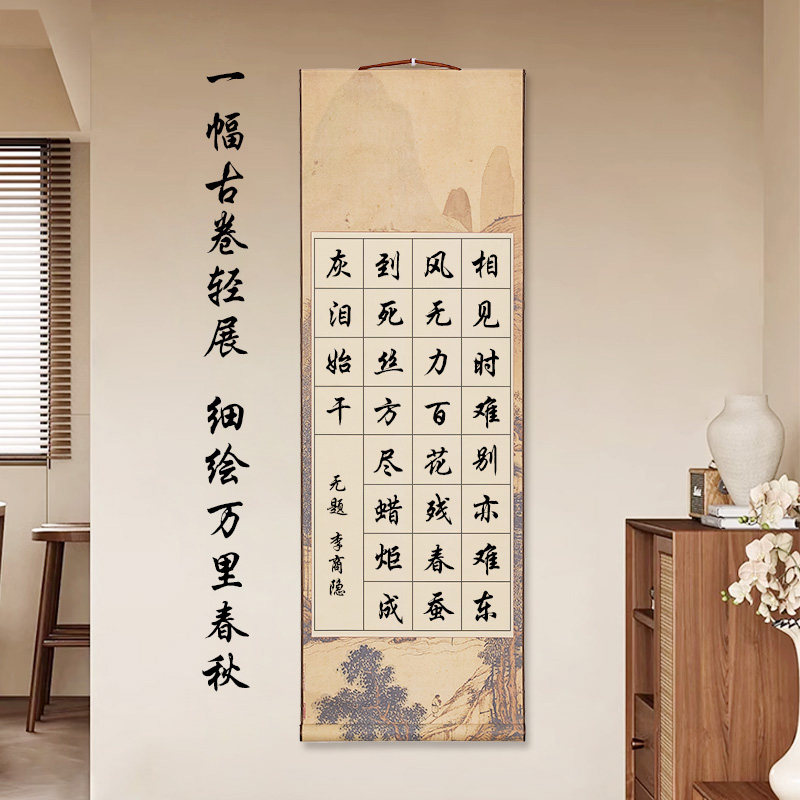 一幅古卷轻展 细绘万里春秋
相见时难别亦难东
风无力百花残春蚕
到死丝方尽蜡炬成
灰泪始干
无题 李商隐